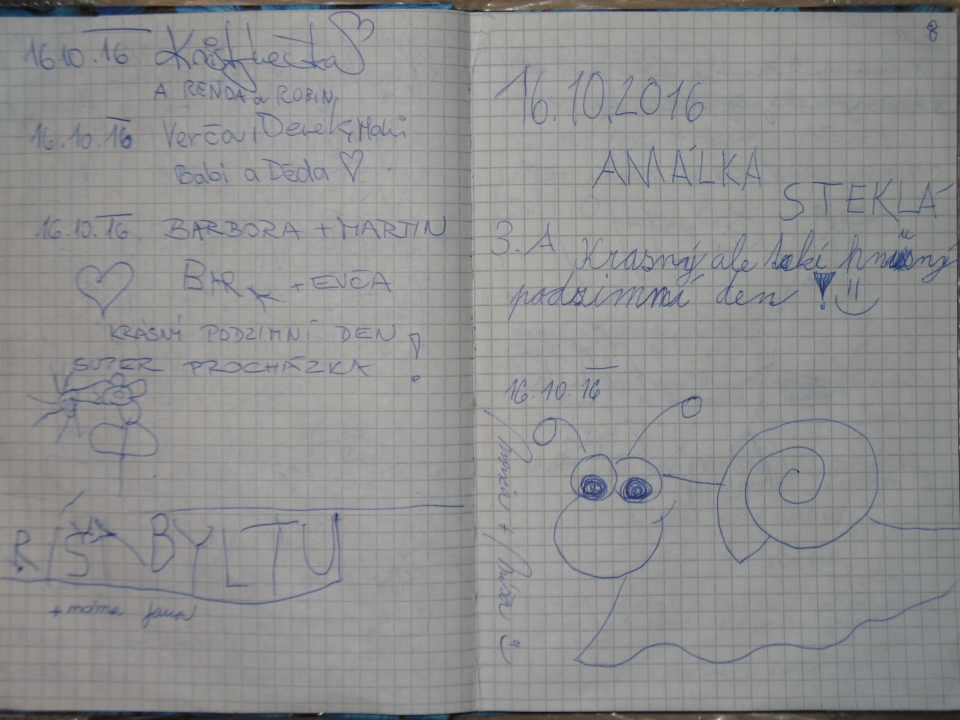 16.10.16
A RENDA a ROBIN
16.10.16 Verča, Derek, Hoki
Babi a Děda
16.10.16 BARBORA + MARTIN
+ EVČA
KRÁSNÝ PODZIMNÍ DEN
SUPER PROCHÁZKA !
BYL TU
+ máma
8
16.10.2016
AMÁLKA
STEKLÁ
3. A Krasný ale taki
podzimní den !
16.10.16